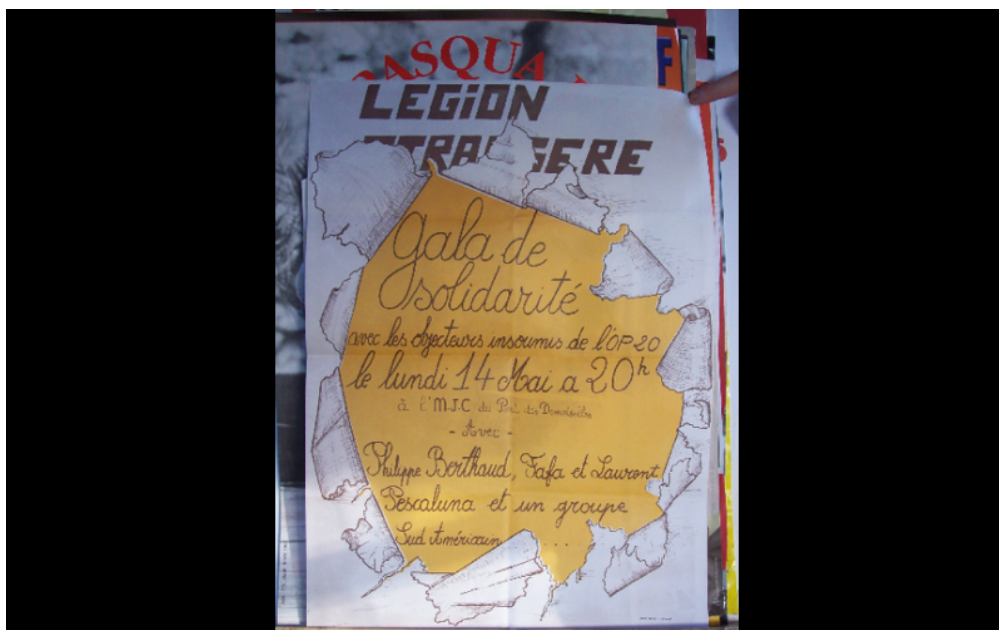 PASQUA
F
LEGION
ETRANGERE
gala de
solidarité
avec les objecteurs insoumis de l'OP20
le lundi 14 Mai a 20h
à l'M.J.C du Pont des Demoiselles
- Avec -
Philippe Berthaud, Fafa et Laurent
Pescaluna et un groupe
Sud Américain ...